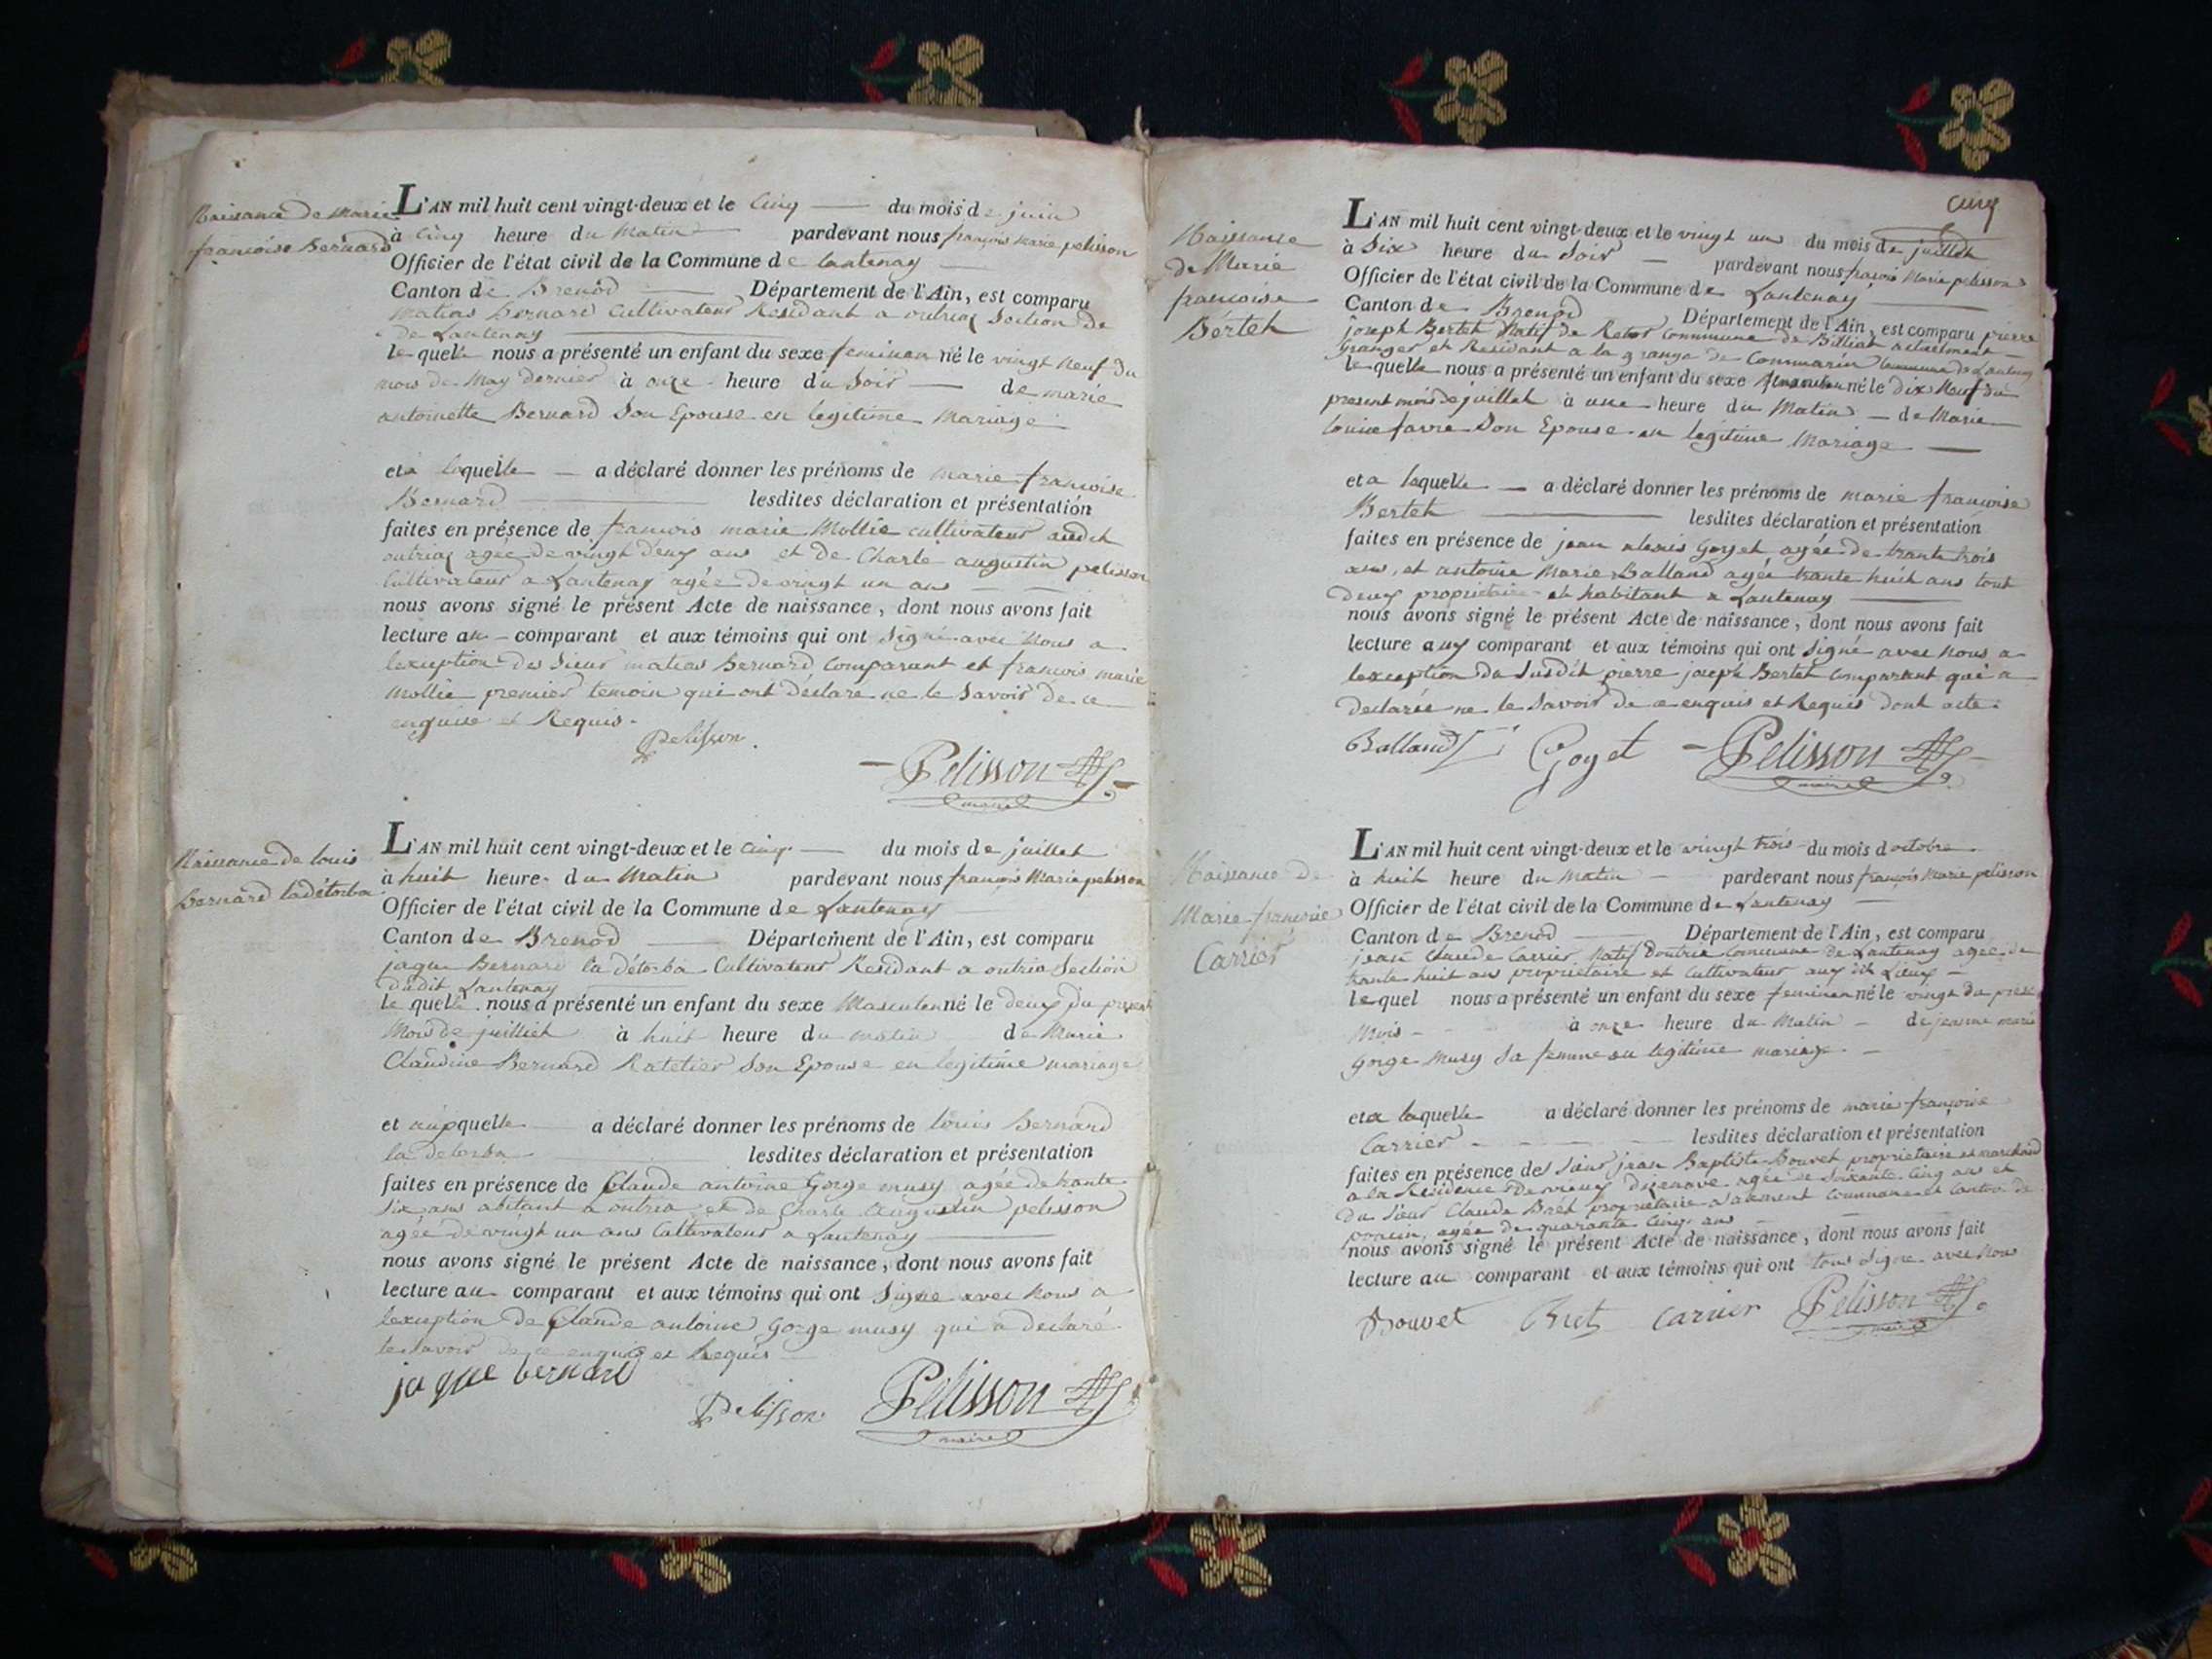 Naissance de Marie
françoise Bernard
L'AN mil huit cent vingt-deux et le Cinq du mois de juin
à Cinq heure du Matin pardevant nous françois marie pelisson
Officier de l'état civil de la Commune de Lantenay
Canton de Brenod Département de l'Ain, est comparu
Matias Bernard Cultivateur Residant a outriaz Section de
de Lantenay
le quele nous a présenté un enfant du sexe feminen né le vingt neuf du
mois de May dernier à onze heure du Soir de marie
antoinette Bernard Son Epouse en legitime Mariage
et a laquelle a déclaré donner les prénoms de marie françoise
Bernard lesdites déclaration et présentation
faites en présence de francois marie Mollie cultivateur audit
outriaz agée de vingt deux ans et de Charle augustin pelisson
Cultivateur a Lantenay agée de vingt un ans
nous avons signé le présent Acte de naissance, dont nous avons fait
lecture au comparant et aux témoins qui ont Signé avec Nous a
lexception des Sieur matias Bernard Comparant et francois marie
Mollie premier temoin qui ont déclaré ne le Savoir de ce
enquise et Requis.
Pelisson
Pelisson
maire
Naissance de louis
Bernard ladétorba
L'AN mil huit cent vingt-deux et le Cinq du mois de juillet
à huit heure du Matin pardevant nous françois Marie pelisson
Officier de l'état civil de la Commune de Lantenay
Canton de Brenod Département de l'Ain, est comparu
jaque Bernard la détorba Cultivateur Residant a outria Section
dudit Lantenay
le quele nous a présenté un enfant du sexe Masculen né le deux du present
Mois de juilliet à huit heure du matin de Marie
Claudine Bernard Ratetier Son Epouse en legitime mariage
et auxquelle a déclaré donner les prénoms de louis Bernard
la detorba lesdites déclaration et présentation
faites en présence de Claude antoine Gorge musy agée de trante
Six ans abitant a outria et de Charle Augustin pelisson
agée de vingt un ans Cultivateur a Lantenay
nous avons signé le présent Acte de naissance, dont nous avons fait
lecture au comparant et aux témoins qui ont Signe avec Nous a
lexception de Claude antoine Gorge musy qui a declaré
le savoir de ce enquis et Requis
jaque bernard
Pelisson
Pelisson
maire
cinq
Naissance
de Marie
françoise
Bertet
L'AN mil huit cent vingt-deux et le vingt un du mois de juillet
à Six heure du Soir pardevant nous françois Marie pelisson
Officier de l'état civil de la Commune de Lantenay
Canton de Brenod Département de l'Ain, est comparu pierre
joseph Bertet Natif de Retor Commune de Billiat actuelment
Granger et Residant a la grange de Commarin Commune de Lantenay
le quelle nous a présenté un enfant du sexe né le dix Neuf du
present mois de juillet à une heure du Matin de Marie
louise favre Son Epouse en legitime Mariage
et a laquelle a déclaré donner les prénoms de marie françoise
Bertet lesdites déclaration et présentation
faites en présence de jean alexis Goyet agée de trante trois
ans, et antoine Marie Balland agée trante huit ans tout
deux proprietaire et habitant a Lantenay
nous avons signé le présent Acte de naissance, dont nous avons fait
lecture aux comparant et aux témoins qui ont Signé avec nous a
lexception du Susdit pierre joseph Bertet Comparant qui a
declarée ne le Savoir de ce enquis et Requis dont acte.
Balland Goyet Pelisson
maire
Naissance de
Marie françoise
Carrier
L'AN mil huit cent vingt-deux et le vingt trois du mois doctobre
à huit heure du matin pardevant nous françois Marie pelisson
Officier de l'état civil de la Commune de Lantenay
Canton de Brenod Département de l'Ain, est comparu
jean Claude Carrier Natif Doutria Commune de Lantenay agée de
trante huit ans proprietaire et Cultivateur aux dit Lieux
le quel nous a présenté un enfant du sexe feminen né le vingt du présent
Mois à onze heure du Matin de jeanne marie
Gorge Musy Sa femme en legitime mariage
et a laquelle a déclaré donner les prénoms de marie françoise
Carrier lesdites déclaration et présentation
faites en présence de Sieur jean Baptiste Bouvet proprietaire et marchand
a la Residence De vieux Dizenave agée de Soixante Cinq ans et
Du Sieur Claude Bret proprietaire a Commune et Canton de
poncin, agée de quarante Cinq ans
nous avons signé le présent Acte de naissance, dont nous avons fait
lecture au comparant et aux témoins qui ont tous Signe avec Nous
Bouvet Bret Carrier Pelisson
maire